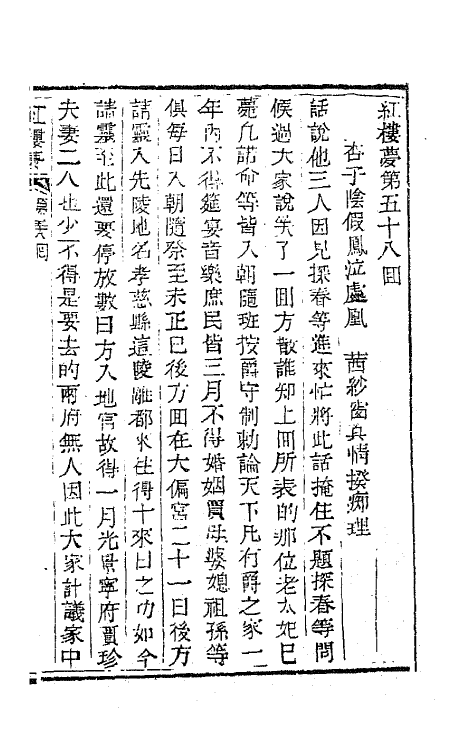 紅樓夢第五十八囬
杏子陰假鳳泣虛凰　茜紗窗真情揆痴理
話說他三人因見探春等進來忙將此話掩住不題探春等問
候過大家說笑了一囬方散誰知上囬所表的那位老太妃已
薨凡誥命等皆入朝隨班按爵守制勅諭天下凡有爵之家一
年內不得筵宴音樂庶民皆三月不得婚姻賈母婆媳祖孫等
俱每日入朝隨祭至未正已後方囬在大偏宮二十一日後方
請靈入先陵地名孝慈縣這陵離都來往得十來日之功如今
請靈至此還要停放數日方入地宮故得一月光景寧府賈珍
夫妻二人也少不得是要去的兩府無人因此大家計議家中
紅樓夢 第 囬